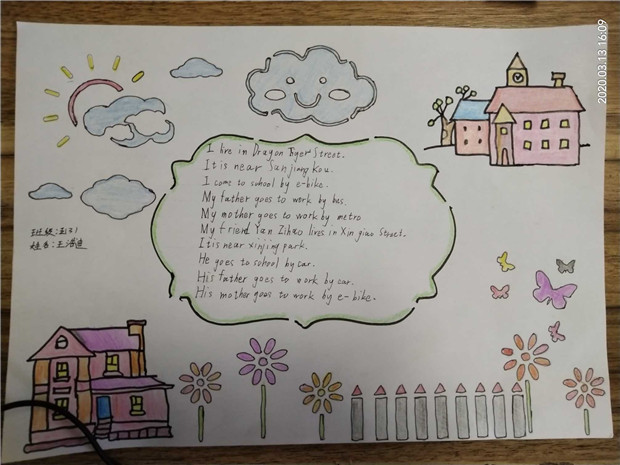 2020.03.13 16:09
I live in Dragon Tiger Street.
It is near Sanjiang Kou.
I come to school by e-bike.
My father goes to work by bus.
My mother goes to work by metro
My friend Yan Zihao lives in Xin qiao Street.
It is near xinjing park.
He goes to school by car.
His father goes to work by car.
His mother goes to work by e-bike.
班级:
姓名:王浩